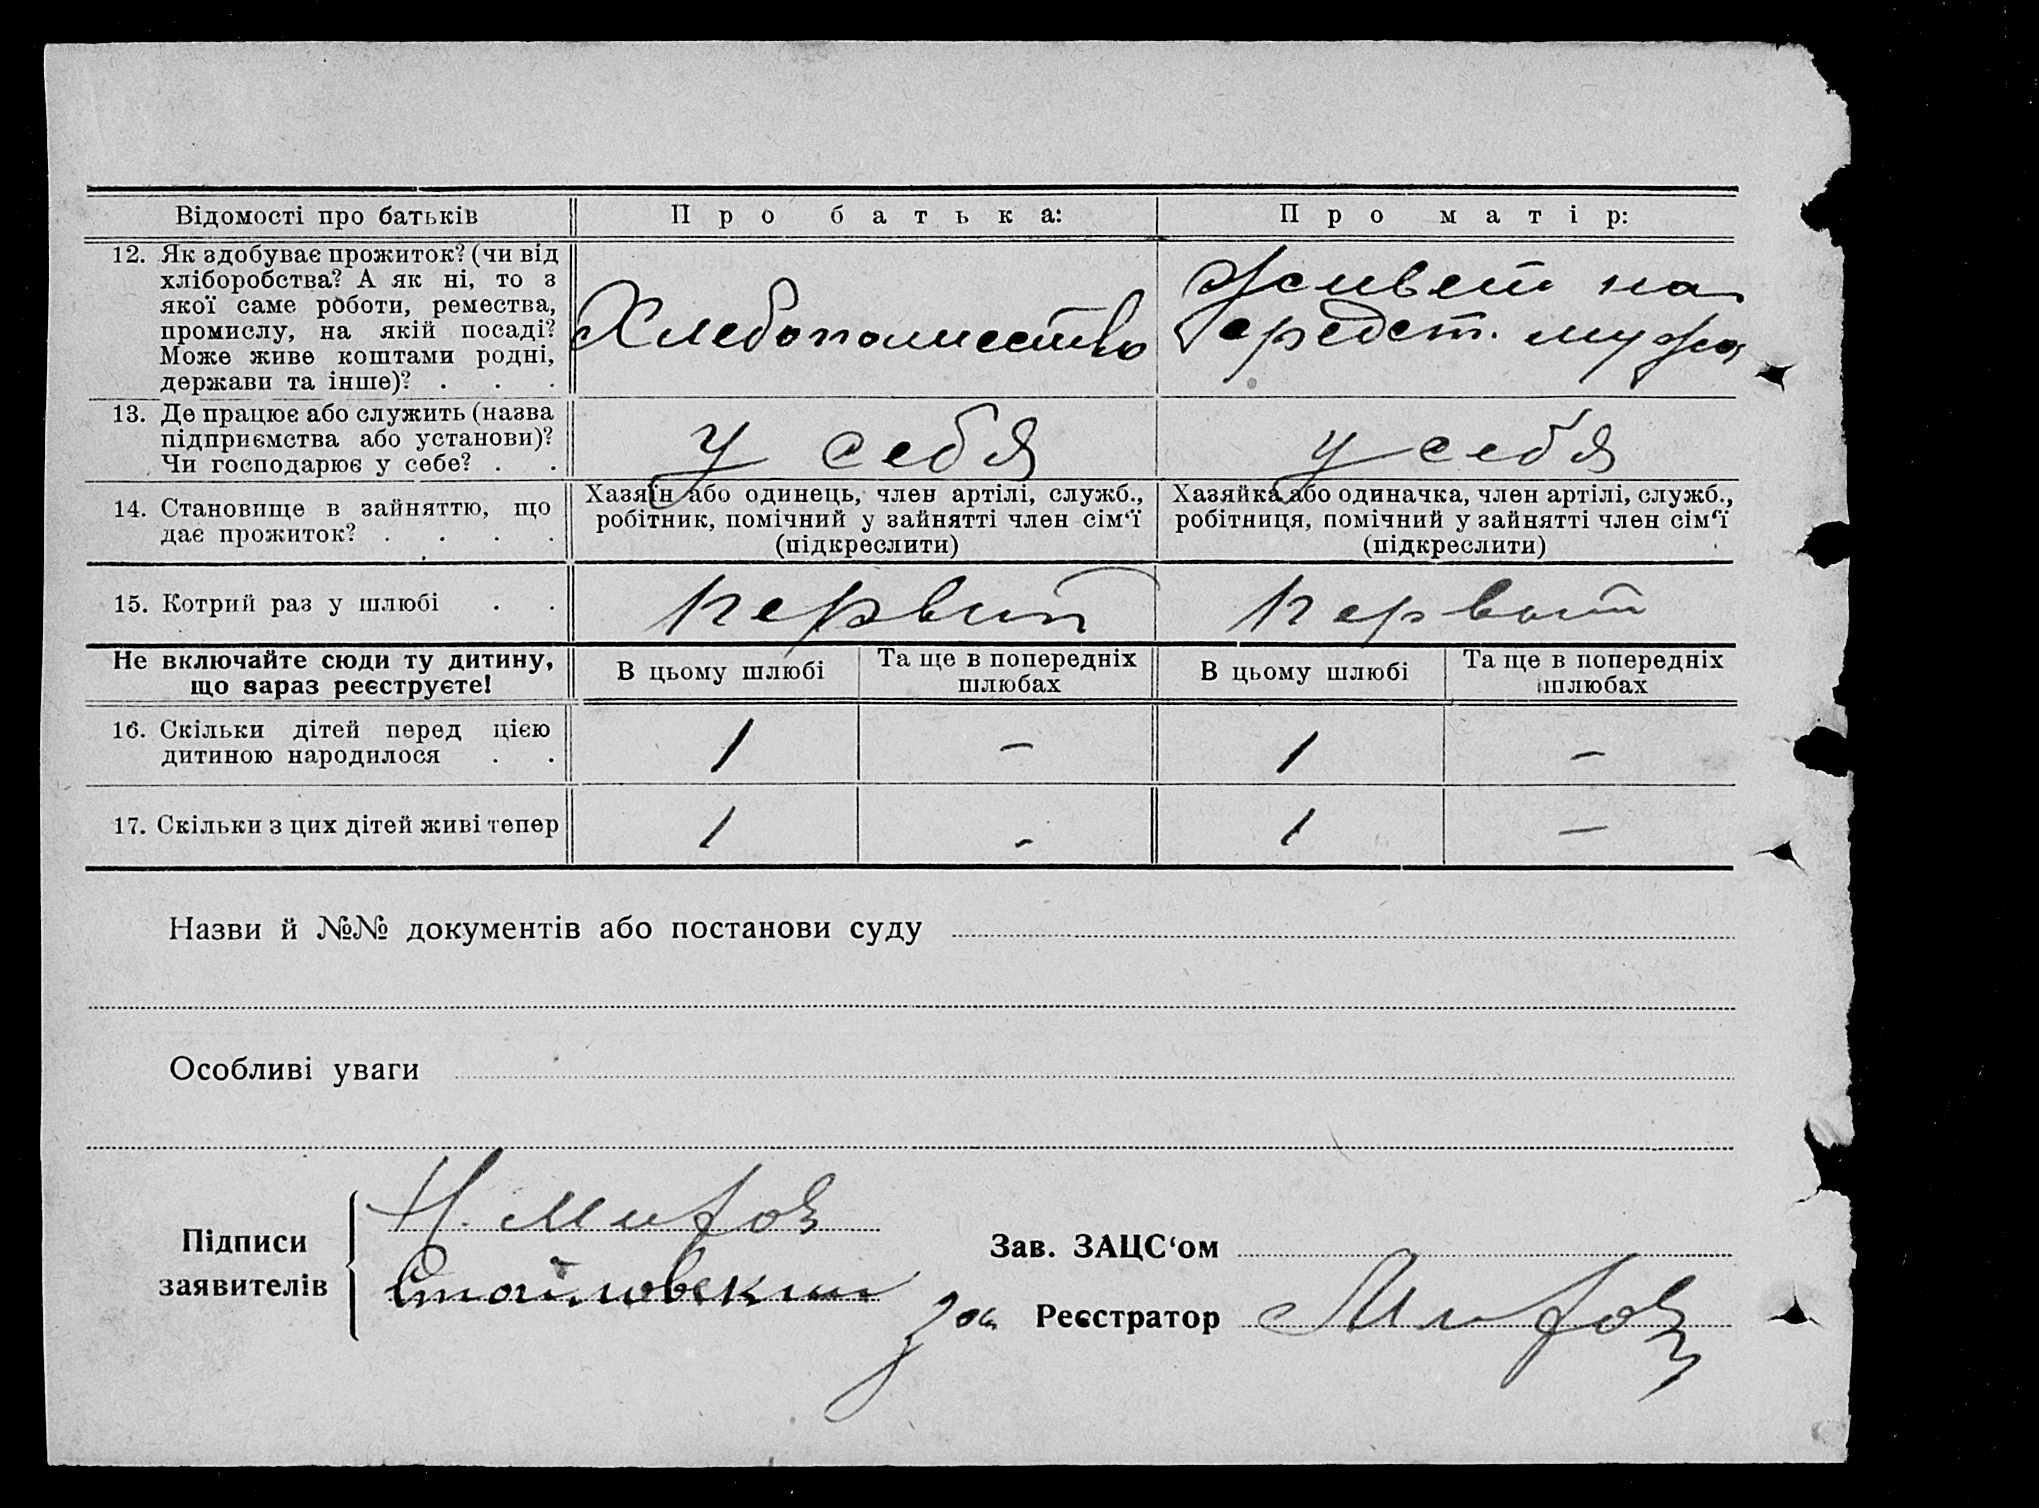 Відомості про батьків
Про батька:
Про матір:
12. Як здобуває прожиток? (чи від
хліборобства? А як ні, то з
якої саме роботи, ремества,
промислу, на якій посаді?
Може живе коштами родні,
держави та інше)? . . .
Хлебопашество
Живет на
средст. мужа
13. Де працює або служить (назва
підприємства або установи)?
Чи господарює у себе? . .
у себя
у себя
14. Становище в зайняттю, що
дає прожиток? . . . .
Хазяїн або одинець, член артілі, служб.,
робітник, помічний у зайнятті член сім‘ї
(підкреслити)
Хазяйка або одиначка, член артілі, служб.,
робітниця, помічний у зайнятті член сім‘ї
(підкреслити)
15. Котрий раз у шлюбі . .
первый
первый
Не включайте сюди ту дитину,
що зараз реєструєте!
В цьому шлюбі
Та ще в попередніх
шлюбах
В цьому шлюбі
Та ще в попередніх
шлюбах
16. Скільки дітей перед цією
дитиною народилося . .
1 – 1 –
17. Скільки з цих дітей живі тепер
1 - 1 –
Назви й №№ документів або постанови суду
Особливі уваги
Підписи
заявителів
Н.
Зав. ЗАЦС‘ом
за Реєстратор